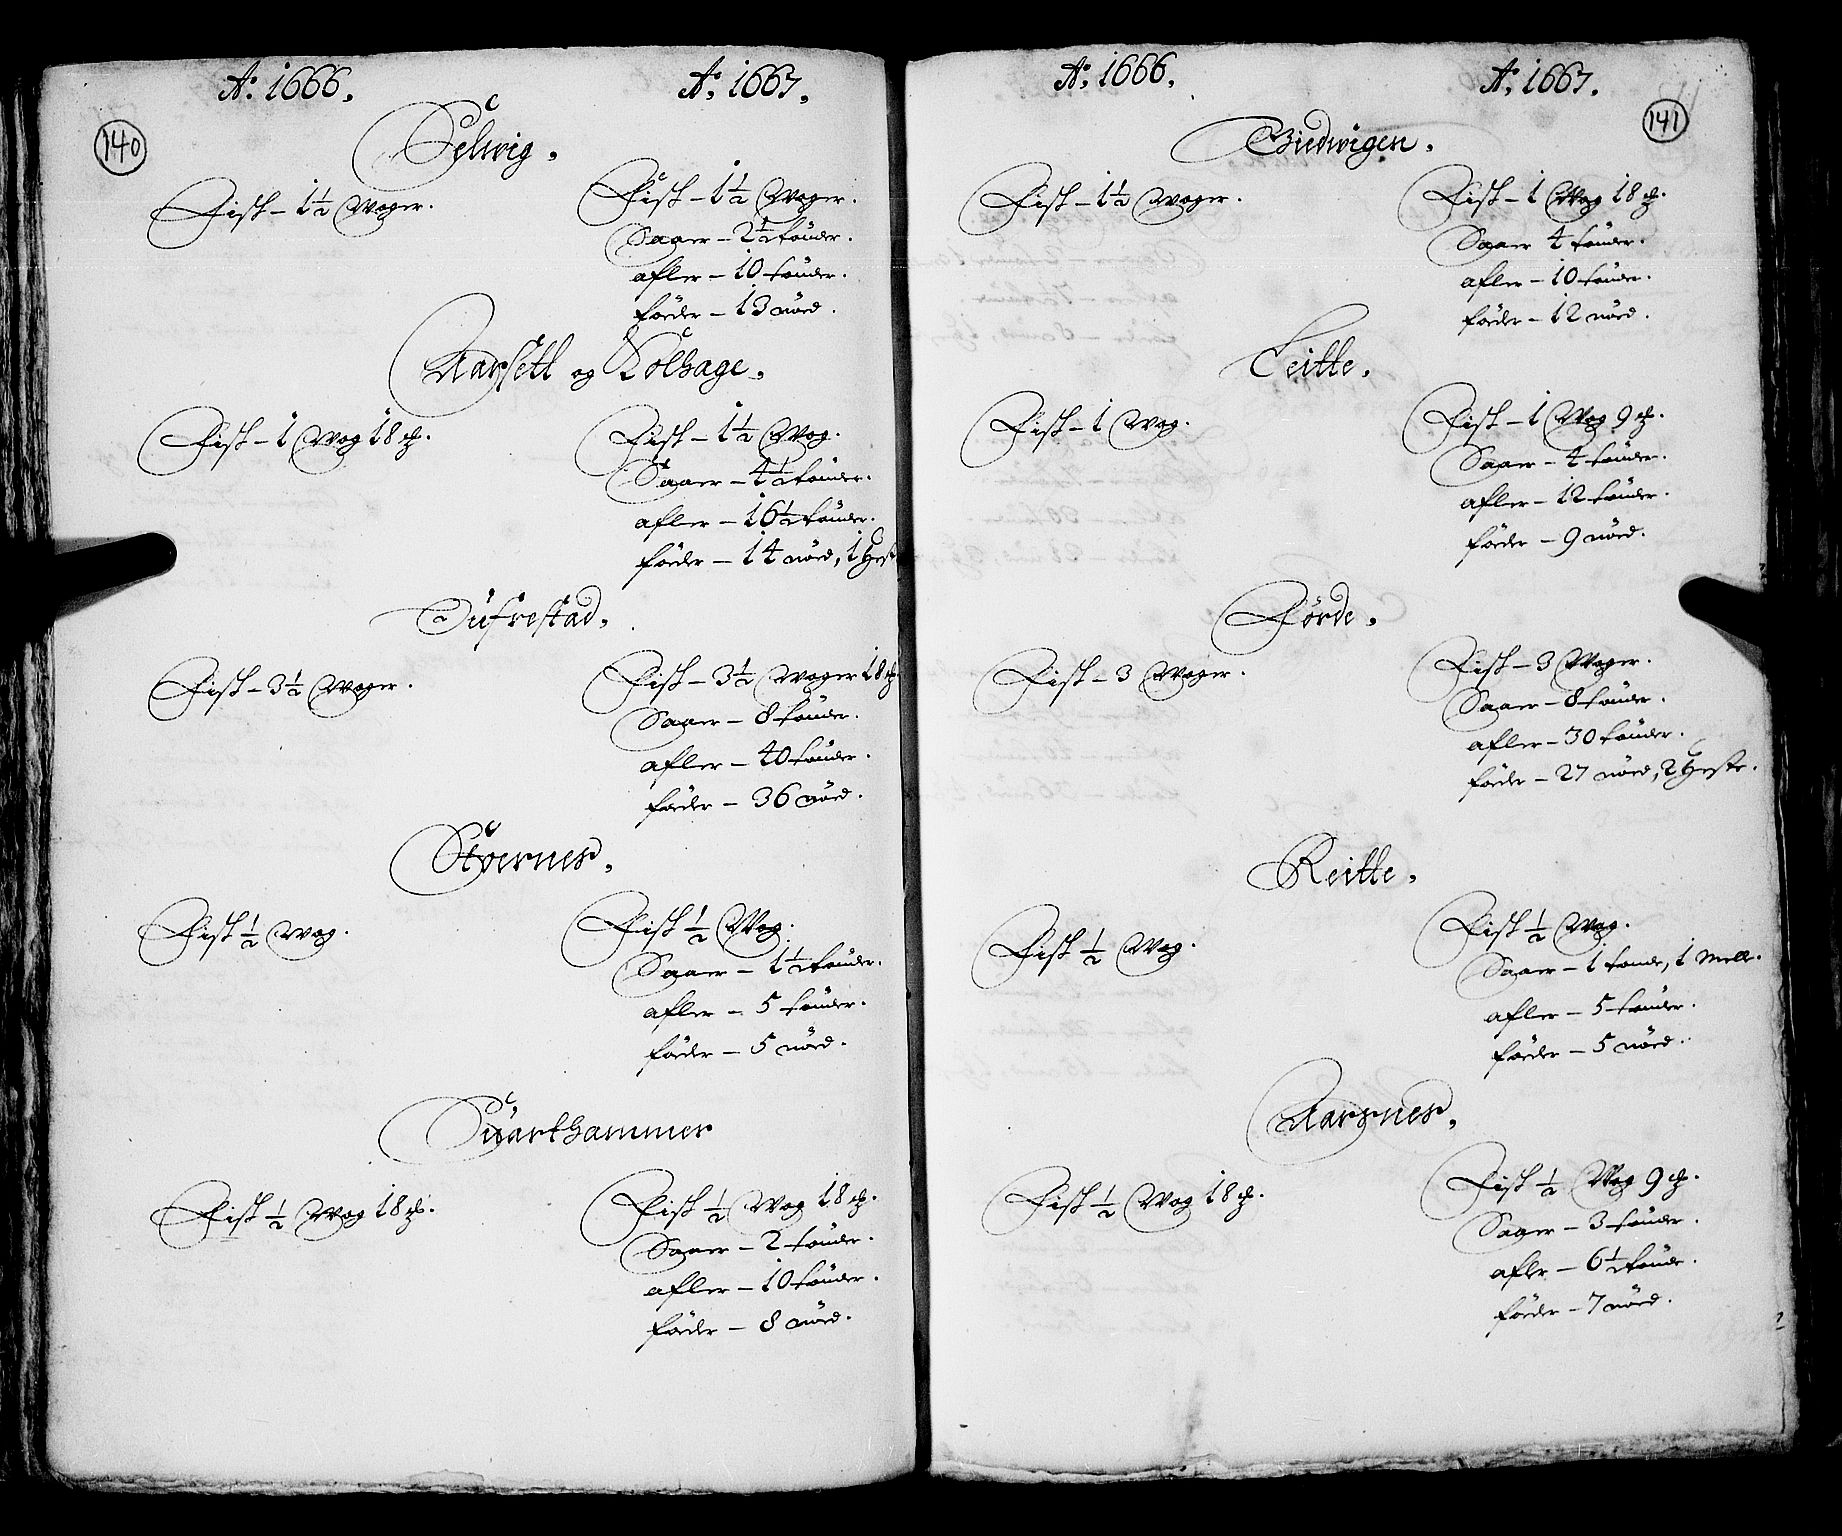 140
Aº. 1666. Aº. 1667.
Selwig.
Fisk – 1½ Woger. Fisk – 1½ Woger.
Saaer – 2½ tønder.
afler – 10 tønder.
føder – 13 nød.
Aarsett og Kolhage.
Fisk – 1 Wog 18 ℔. Fisk – 1½ Wog.
Saaer – 4½ tønder.
afler – 16½ tønder.
føder – 14 nød, 1 Hest
Dufrestad.
Fisk – 3½ Woger. Fisk – 3½ Woger 18 ℔.
Saaer – 8 tønder.
afler – 40 tønder.
føder – 36 nød.
Stoernes.
Fisk ½ Wog. Fisk ½ Wog.
Saaer – 1½ tønder.
afler – 5 tønder.
føder – 5 nød.
Suarthammer
Fisk ½ Wog 18 ℔. Fisk ½ Wog 18 ℔.
Saaer – 2 tønder.
afler – 10 tønder.
føder – 8 nød.
141
Aº. 1666. Aº. 1667.
Biedwigen.
Fisk – 1½ Woger. Fisk – 1 Wog 18 ℔.
Saaer 4 tønder.
afler – 10 tønder.
føder – 12 nød.
Leitte.
Fisk – 1 Wog. Fisk – 1 Wog 9 ℔.
Saaer – 4 tønder.
afler – 12 tønder.
føder – 9 nød.
Førde.
Fisk – 3 Woger. Fisk – 3 Woger.
Saaer – 8 tønder.
afler – 30 tønder.
føder – 27 nød, 2 Heste.
Reitte.
Fisk ½ Wog. Fisk ½ Wog.
Saaer – 1 tønde, 1 Melle.
afler – 5 tønder.
føder – 5 nød.
Aarsnes.
Fisk ½ Wog 18 ℔. Fisk ½ Wog 9 ℔.
Saaer – 3 tønder.
afler – 6½ tønde.
føder – 7 nød.